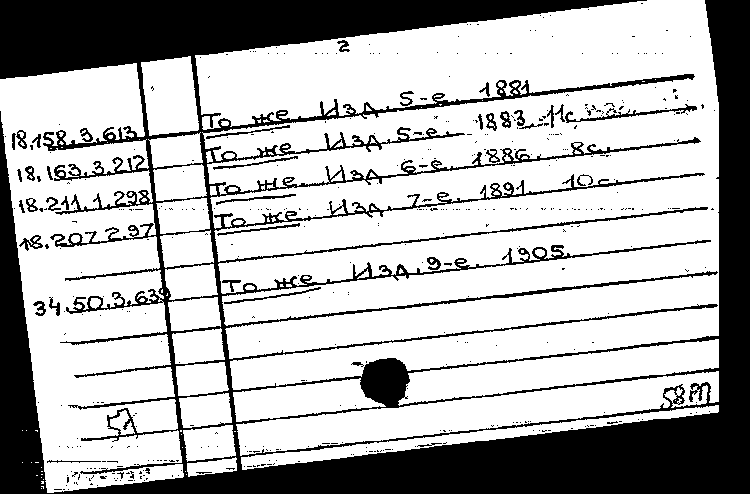 2
18.158.3.613 То же. Изд. 5-е. 1881
18.163.3.212 То же. Изд. 5-е. 1883. 11с.
18.211.1.298 То же. Изд 6-е. 1886. 8с.
18.207 2.97 То же. Изд. 7-е. 1891. 10с.
34.50.3.639 То же. Изд. 9-е. 1905.
58М